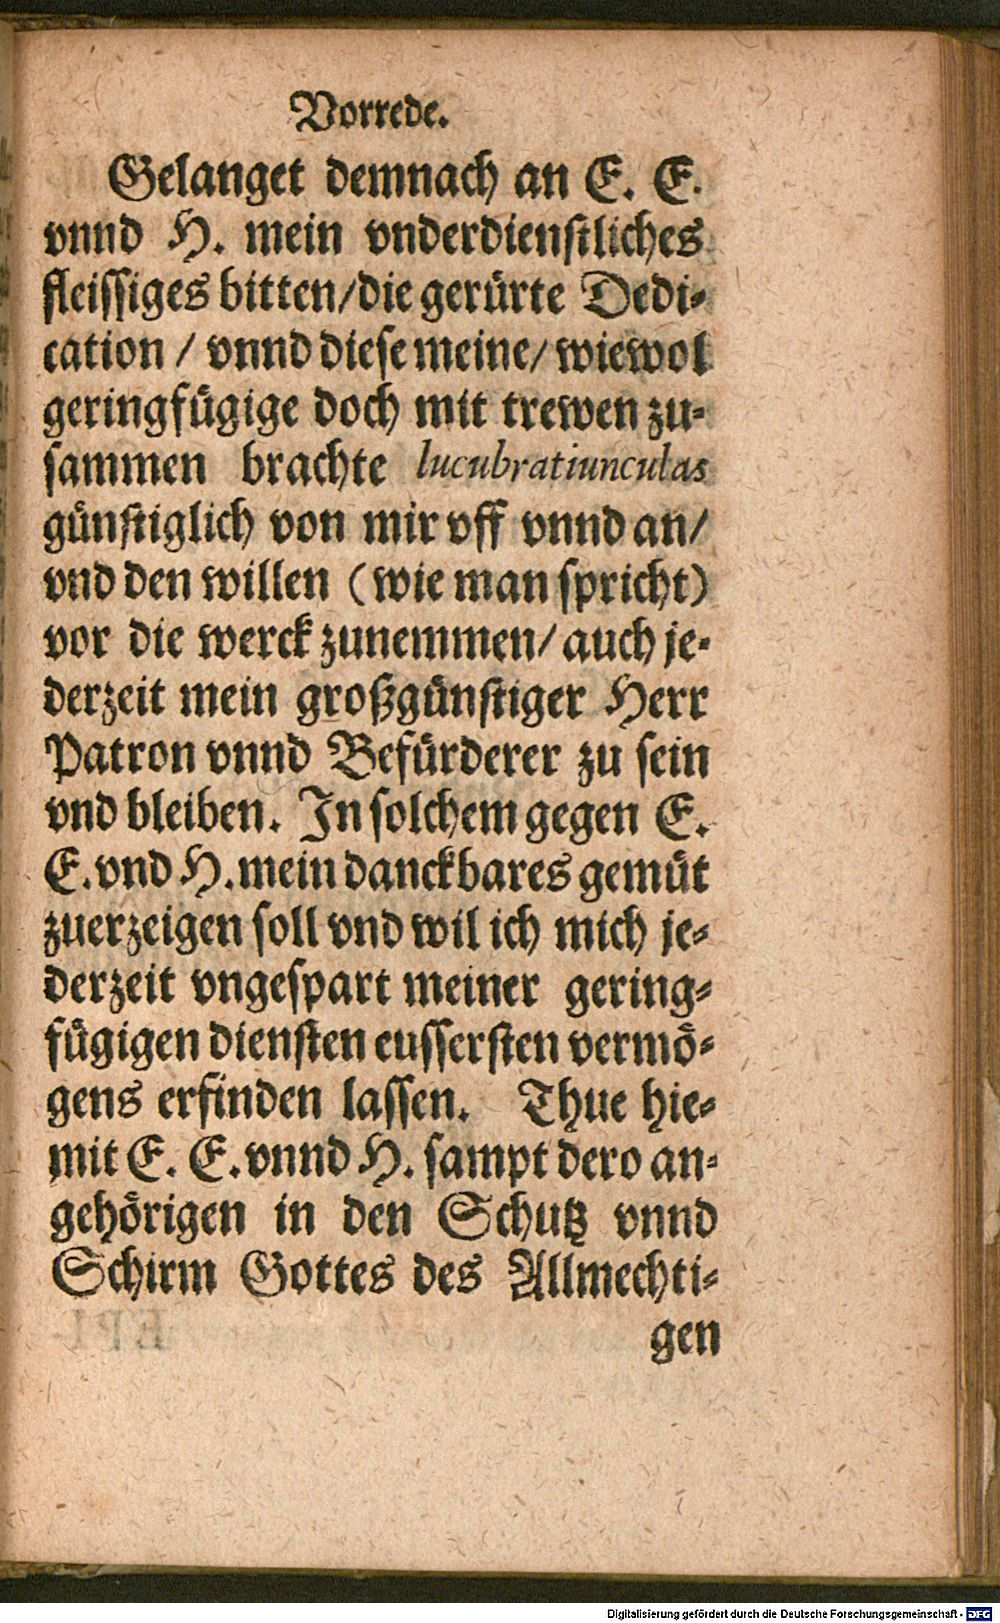 Vorrede.
Gelanget demnach an E. E.
vnnd H. mein vnderdienstliches
fleissiges bitten/die gerürte Dedi-
cation / vnnd diese meine/ wiewol
geringfügige doch mit trewen zu-
sammen brachte lucubratiunculas
günstiglich von mir vff vnnd an/
vnd den willen (wie man spricht)
vor die werck zunemmen/ auch je-
derzeit mein großgünstiger Herr
Patron vnnd Befürderer zu sein
vnd bleiben. In solchem gegen E.
E. vnd H. mein danckbares gemüt
zuerzeigen soll vnd wil ich mich je-
derzeit vngespart meiner gering-
fügigen diensten eussersten vermö-
gens erfinden lassen. Thue hie-
mit E. E. vnnd H. sampt dero an-
gehörigen in den Schutz vnnd
Schirm Gottes des Allmechti-
gen
Digitalisierung gefördert durch die Deutsche Forschungsgemeinschaft - DFG